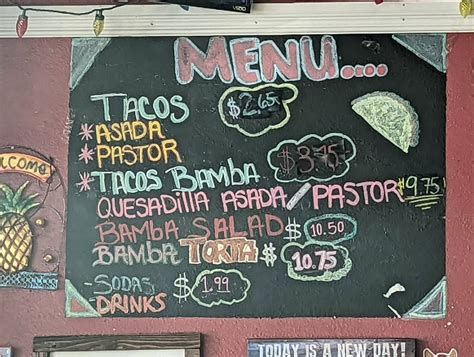 MENU....
TACOS $2.65
*ASADA
*PASTOR
*TACOS BAMBA $3.75
QUESADILLA ASADA/PASTOR $9.75
BAMBA SALAD $10.50
BAMBA TORTA $10.75
-SODAS $1.99
-DRINKS
Welcome
TODAY IS A NEW DAY!